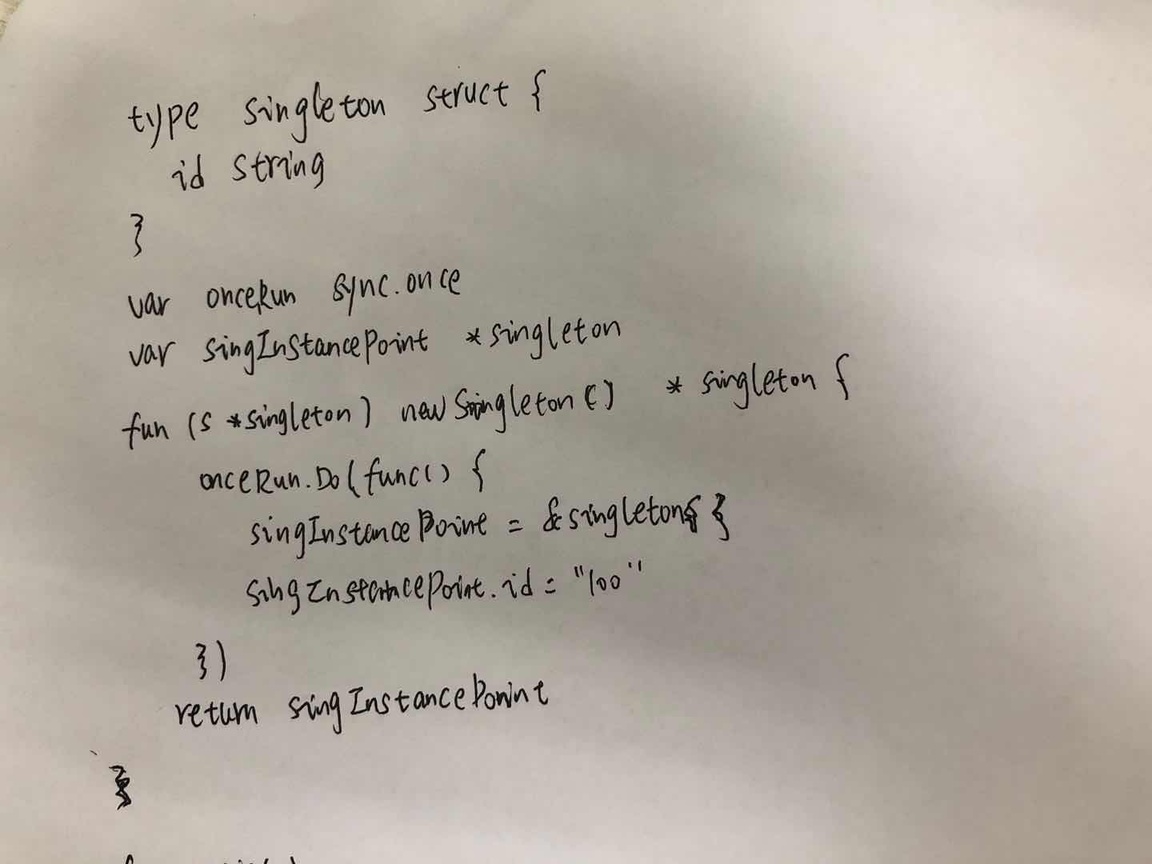 type singleton struct {
id string
}
var onceRun sync.once
var singInstancePoint *singleton
fun (s *singleton) newSingleton() * singleton {
onceRun.Do(func() {
singInstancePoint = &singleton{ }
singInstancePoint.id = "100"
})
return singInstancePoint
}